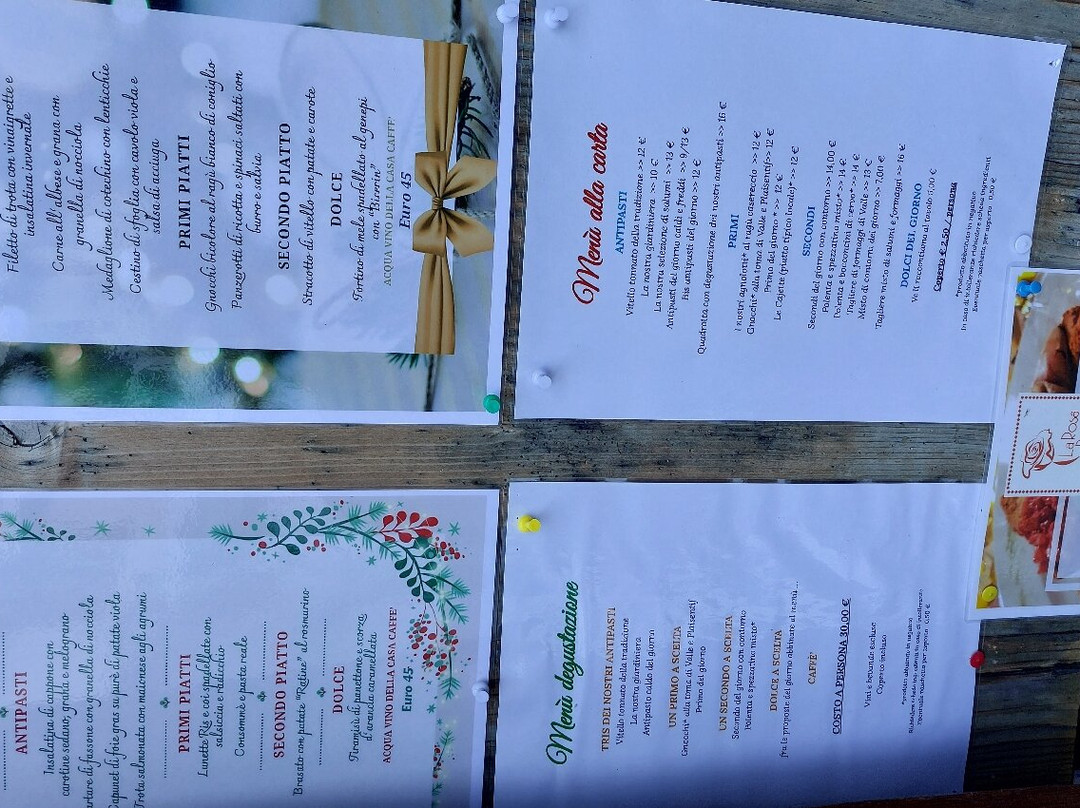 ANTIPASTI
Insalatina di cappone con
carotine sedano, grana e melograno
di fassone con granella di nocciola
di foie gras su purè di patate viola
Trota salmonata con maionese agli agrumi
PRIMI PIATTI
Lunette Ris e cös spadellate con
salsiccia e radicchio
Consommè e pasta reale
SECONDO PIATTO
Brasato con patate "Ratine" al rosmarino
DOLCE
Tiramisù di panettone e scorza
d'arancia caramellata
ACQUA VINO DELLA CASA CAFFE'
Euro 45
Filetto di trota con vinaigrette e
insalatina invernale
Carne all'albese e grana con
granella di nocciola
Medaglione di cotechino con lenticchie
Cestino di sfoglia con cavolo viola e
salsa di acciuga
PRIMI PIATTI
Gnocchi bicolore al ragù bianco di coniglio
Panzerotti di ricotta e spinaci saltati con
burro e salvia
SECONDO PIATTO
Stracotto di vitello con patate e carote
DOLCE
Tortino di mele spadellato al genepi
con "Bicerin"
ACQUA VINO DELLA CASA CAFFE'
Euro 45
Menù degustazione
TRIS DEI NOSTRI ANTIPASTI
Vitello tonnato della tradizione
La nostra giardiniera
Antipasto caldo del giorno
UN PRIMO A SCELTA
Gnocchi* alla toma di Valle e Plaisentif
Primo del giorno
UN SECONDO A SCELTA
Secondo del giorno con contorno
Polenta e spezzatino misto*
DOLCE A SCELTA
fra le proposte del giorno abbinate al menù...
CAFFE'
COSTO A PERSONA 30,00 €
Vini e bevande escluse
Coperto incluso
*prodotto abbattuto in negativo
Menù alla carta
ANTIPASTI
Vitello tonnato della tradizione >> 12 €
La nostra giardiniera >> 10 €
La nostra selezione di salumi >>13 €
Antipasti del giorno caldi e freddi >> 9/13 €
Bis antipasti del giorno >> 12 €
Quadrotta con degustazione dei nostri antipasti >> 16 €
PRIMI
I nostri agnolotti* al sugo casereccio >> 12 €
Gnocchi* alla toma di Valle e Plaisentif>> 12 €
Primo del giorno * >> 12 €
Le Cajette (piatto tipico locale)* >> 12 €
SECONDI
Secondi del giorno con contorno >> 14,00 €
Polenta e spezzatino misto* >> 14 €
Polenta e bocconcini di cervo* >> 14 €
Tagliere di formaggi di Valle >> 13 €
Misto di contorni del giorno >> 7,00 €
Tagliere misto di salumi e formaggi >> 16 €
DOLCI DEL GIORNO
Ve li raccontiamo al tavolo 5,00 €
Coperto € 2,50 / persona
*prodotto abbattuto in negativo
In caso di intolleranze richiedere scheda ingredienti